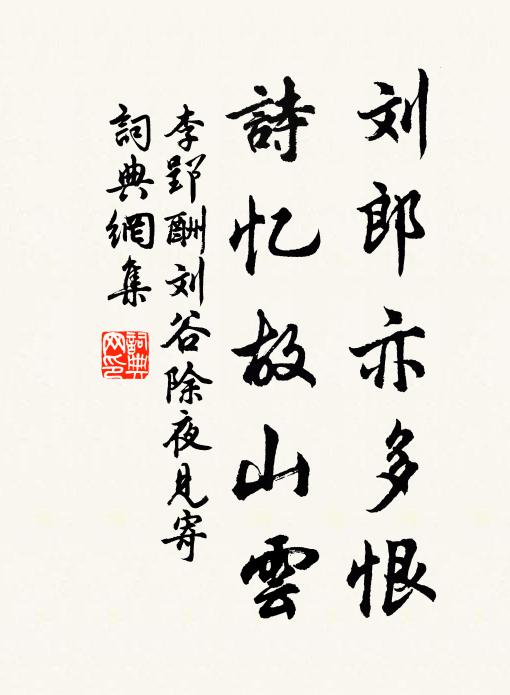 刘郎亦多恨
詩忆故山雲
李郢酬刘谷除夜見寄
詞典網集
詞典
网印